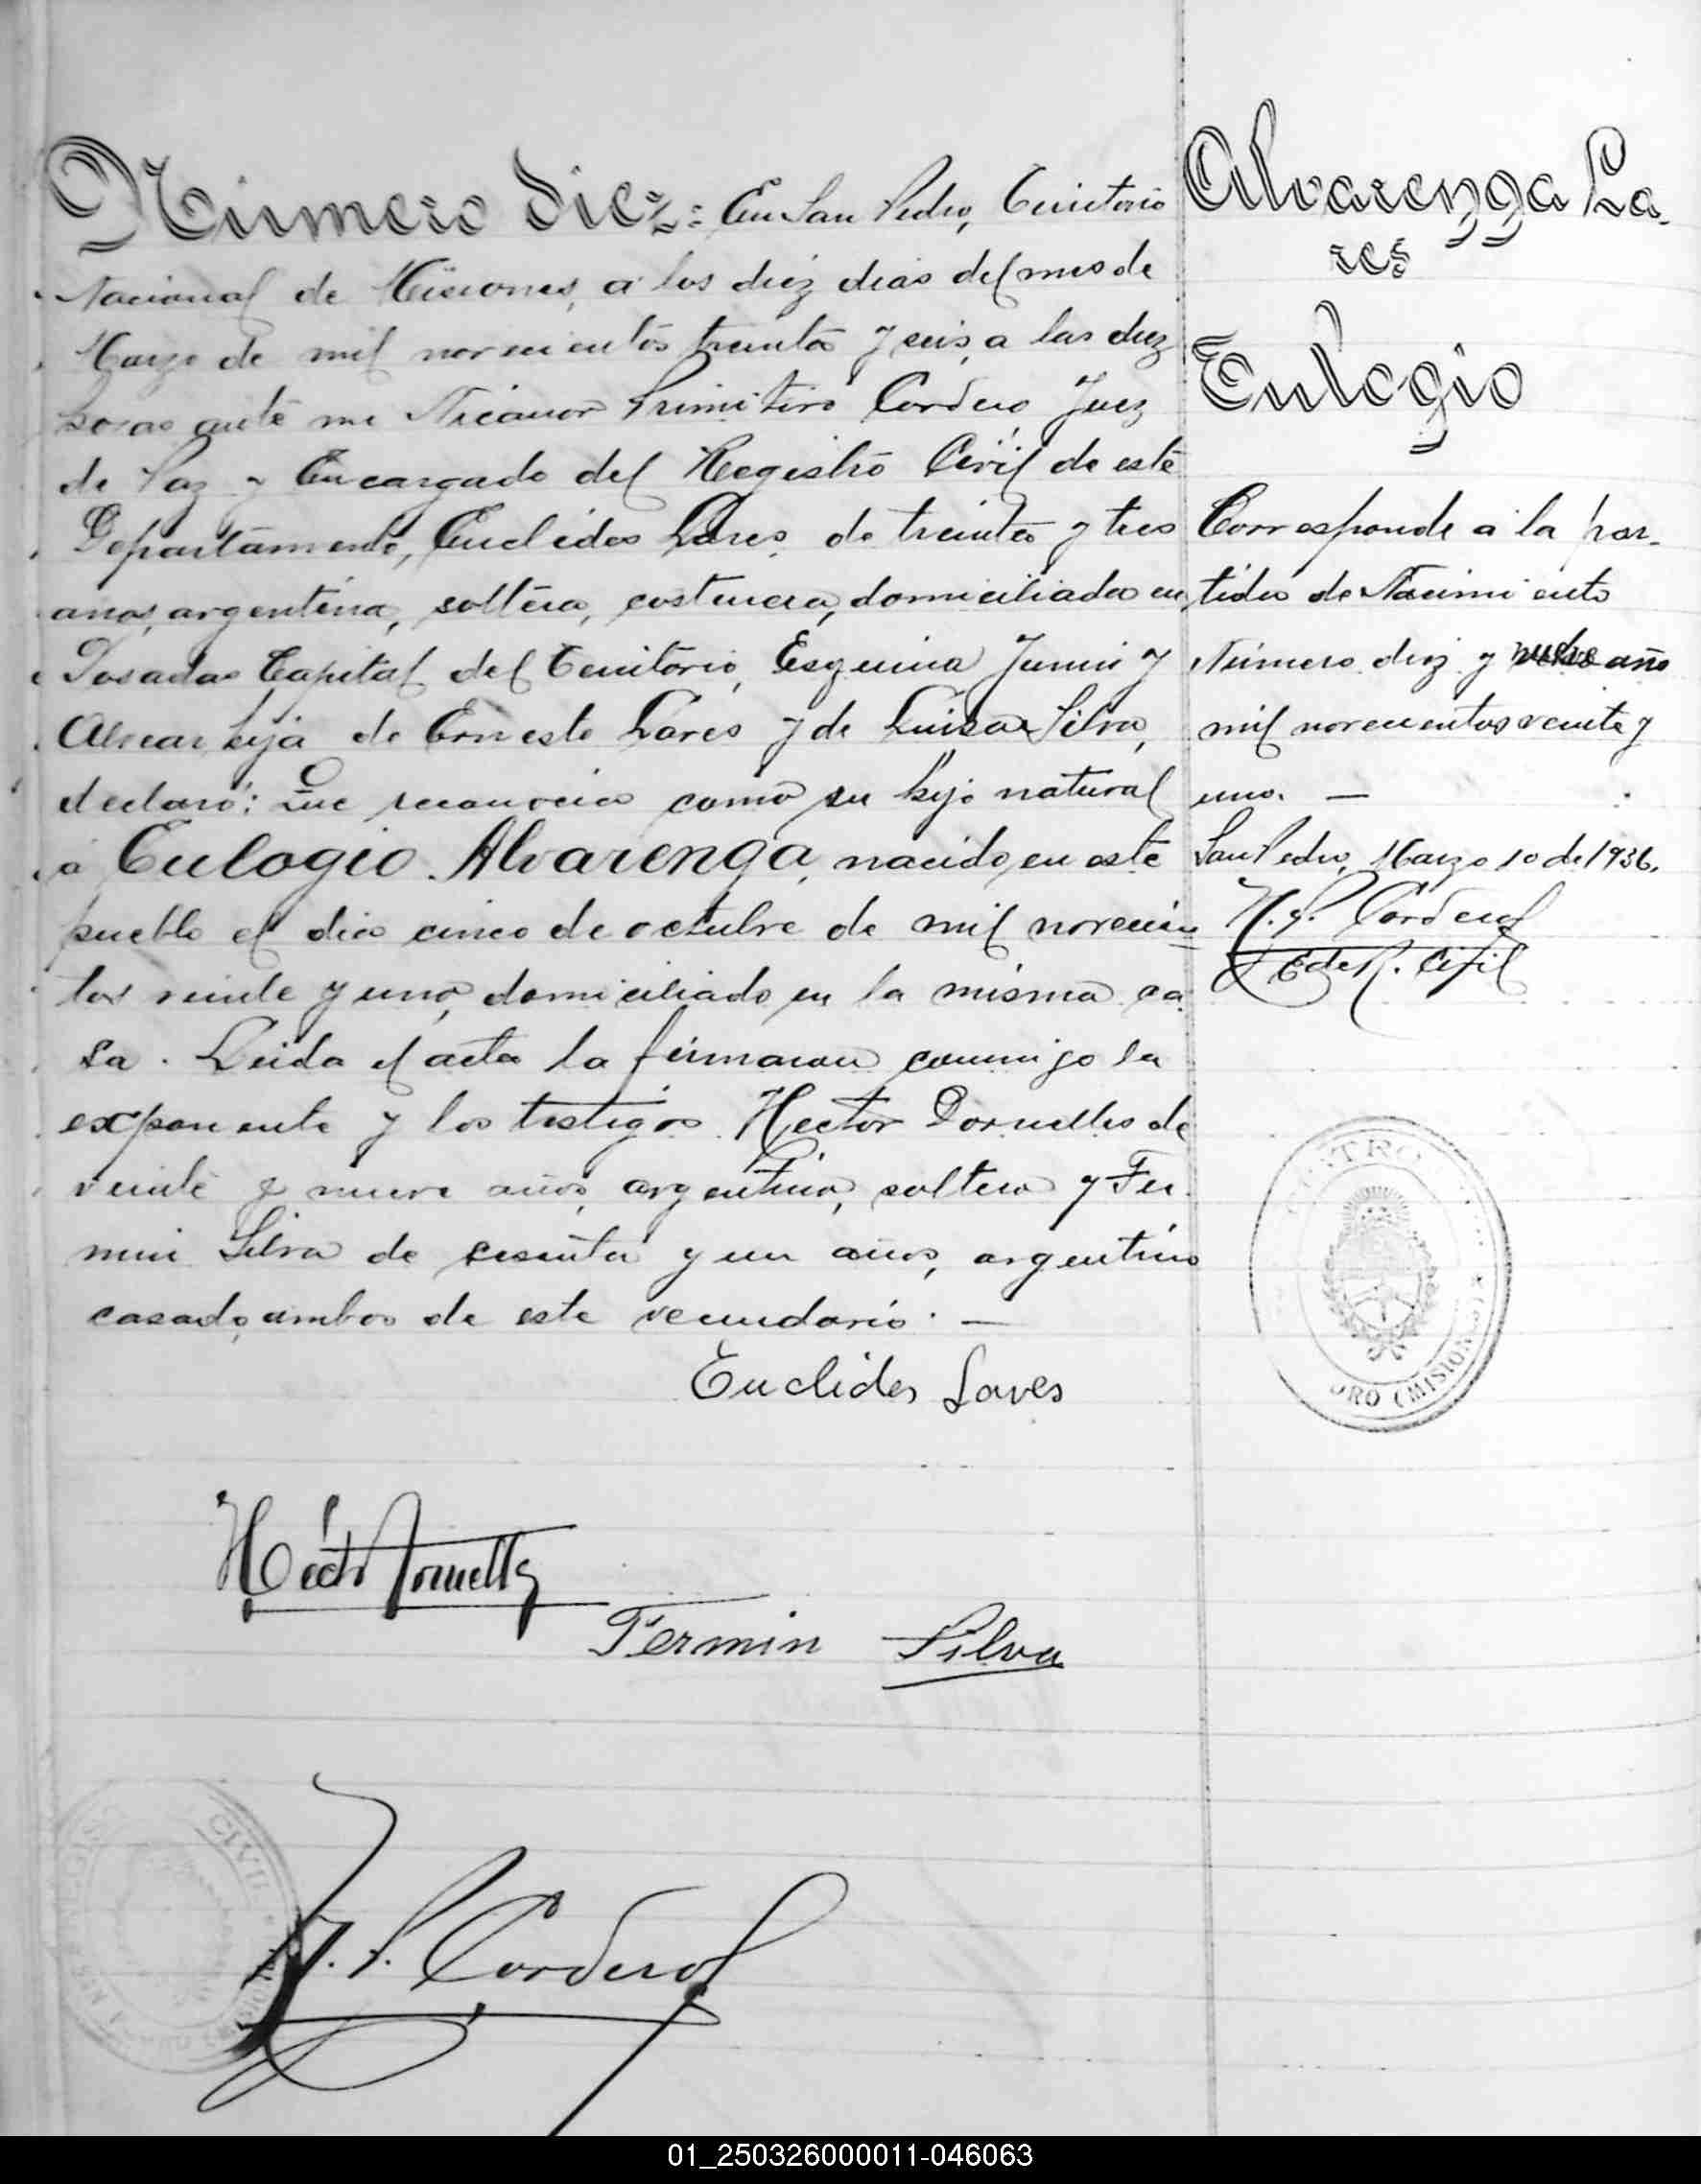 Número diez: En San Pedro, Territorio
Nacional de Misiones, a los diez dias del mes de
Marzo de mil novecientos treinta y seis, a las diez
horas ante mi Nicanor Primitivo Cordero Juez
de Paz y Encargado del Registro Civil de este
Departamento, Euclides Lares de treinta y tres
anos, argentina, soltera, costurera, domiciliada en
Posadas Capital del Territorio, Esquina Junin y
Alvear hija de Ernesto Lares y de Luisa Silva,
declaró: Que reconocia como su hijo natural
a Eulogio Alvarenga, nacido en este
pueblo el dia cinco de octubre de mil novecien
tos veinte y uno, domiciliado en la misma ca
sa. Leida el acta la firmaron conmigo la
exponente y los testigos Hector Dornelles de
veinte y nueve años, argentino, soltero y Fer
min Silva de sesenta y un años, argentino
casado, ambos de este vecindario. —
Euclides Lares
Héctor Dornelles
Fermin Silva
CIVIL
N. P. Cordero
Alvarenga La-
res
Eulogio
Corresponde a la par-
tida de Nacimiento
Número diez y nueve año
mil novecientos veinte y
uno. —
San Pedro, Marzo 10 de 1936.
N. P. Cordero
E de R. Civil
01_250326000011-046063